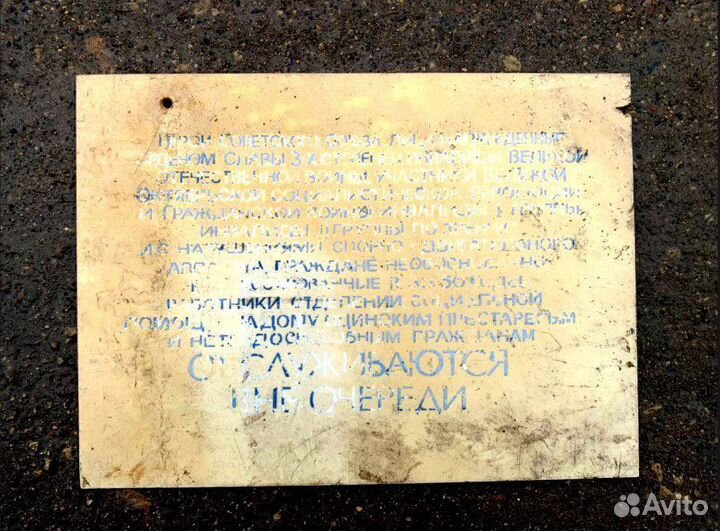 ГЕРОИ СОВЕТСКОГО СОЮЗА ЛИЦА НАГРАЖДЕННЫЕ
ОРДЕНОМ СЛАВЫ 3 ВЕЛИКОЙ
ОТЕЧЕСТВЕННОЙ ВОЙНЫ УЧАСТНИКИ ВЕЛИКОЙ
ОКТЯБРЬСКОЙ СОЦИАЛИСТИЧЕСКОЙ РЕВОЛЮЦИИ
И ГРАЖДАНСКОЙ ВОЙНЫ ИНВАЛИДЫ I ГРУППЫ
ИНВАЛИДЫ II ГРУППЫ ПО ЗРЕНИЮ
И С НАРУШЕНИЯМИ ОПОРНО-ДВИГАТЕЛЬНОГО
АППАРАТА ГРАЖДАНЕ НЕОБОСНОВАННО
РЕПРЕССИРОВАННЫЕ В
РАБОТНИКИ ОТДЕЛЕНИЙ СОЦИАЛЬНОЙ
ПОМОЩИ НА ДОМУ ОДИНОКИМ ПРЕСТАРЕЛЫМ
И НЕТРУДОСПОСОБНЫМ ГРАЖДАНАМ
ОБСЛУЖИВАЮТСЯ
ВНЕ ОЧЕРЕДИ
Avito